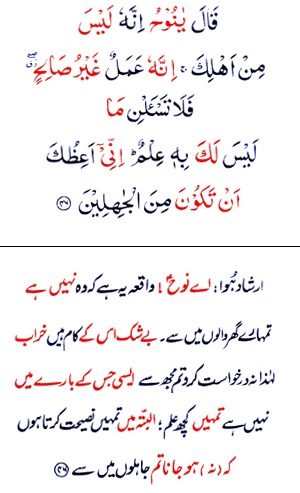 قَالَ یٰنُوْحُ اِنَّهٗ لَیْسَ
مِنْ اَهْلِكَ ۚ اِنَّهٗ عَمَلٌ غَیْرُ صَالِحٍ ۖ
فَلَا تَسْـَٔلْنِ مَا
لَیْسَ لَكَ بِهٖ عِلْمٌ ؕ اِنِّیْۤ اَعِظُكَ
اَنْ تَكُوْنَ مِنَ الْجٰهِلِیْنَ ﴿۴۶﴾
ارشاد ہُوا: اے نوح! واقعہ یہ ہے کہ وہ نہیں ہے
تمہارے گھر والوں میں سے۔ بے شک اس کے کام ہیں خراب
لہٰذا نہ درخواست کرو تم مجھ سے ایسی جس کے بارے میں
نہیں ہے تمہیں کچھ علم؛ البتّہ میں تمہیں نصیحت کرتا ہوں
کہ (نہ) ہو جانا تم جاہلوں میں سے ﴿۴۶﴾